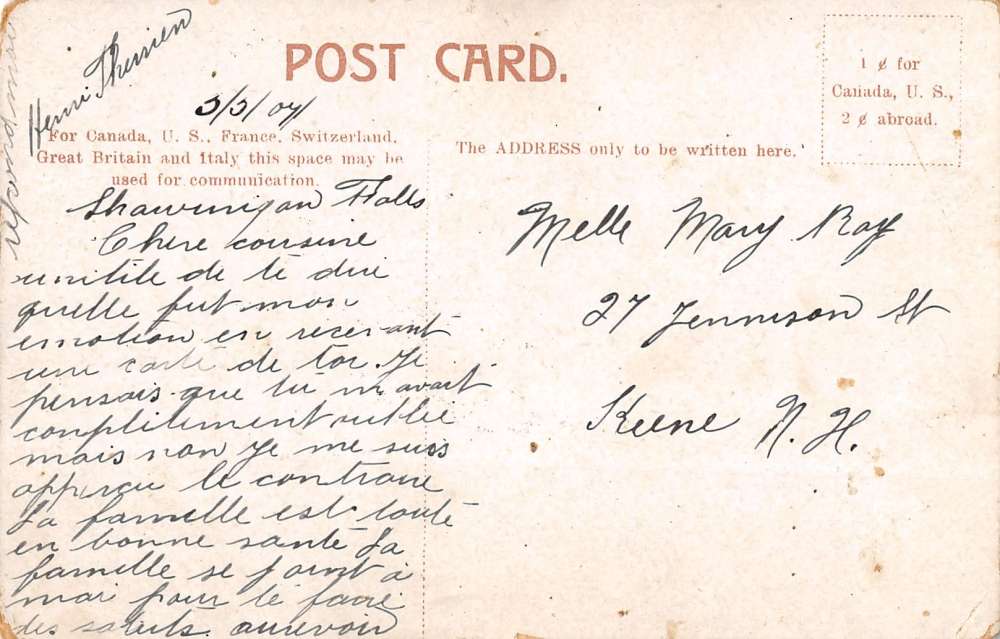 Henri Therrien
POST CARD.
3/3/07
For Canada, U. S., France, Switzerland,
Great Britain and Italy this space may be
used for communication.
1 ¢ for
Canada, U. S.,
2 ¢ abroad.
The ADDRESS only to be written here.
Shawinigan Falls
Chere cousine
unitile de te dire
quelle fut mon
emotion en recevant
une carte de toi. Je
pensais que tu m avait
complitement oublie
mais non Je me suis
apperçu le contraire
La famille est toute
en bonne santé La
famille se joint a
moi pour te faire
des saluts. aurevoir
Melle Mary Roy
27 Jennison St
Keene N. H.